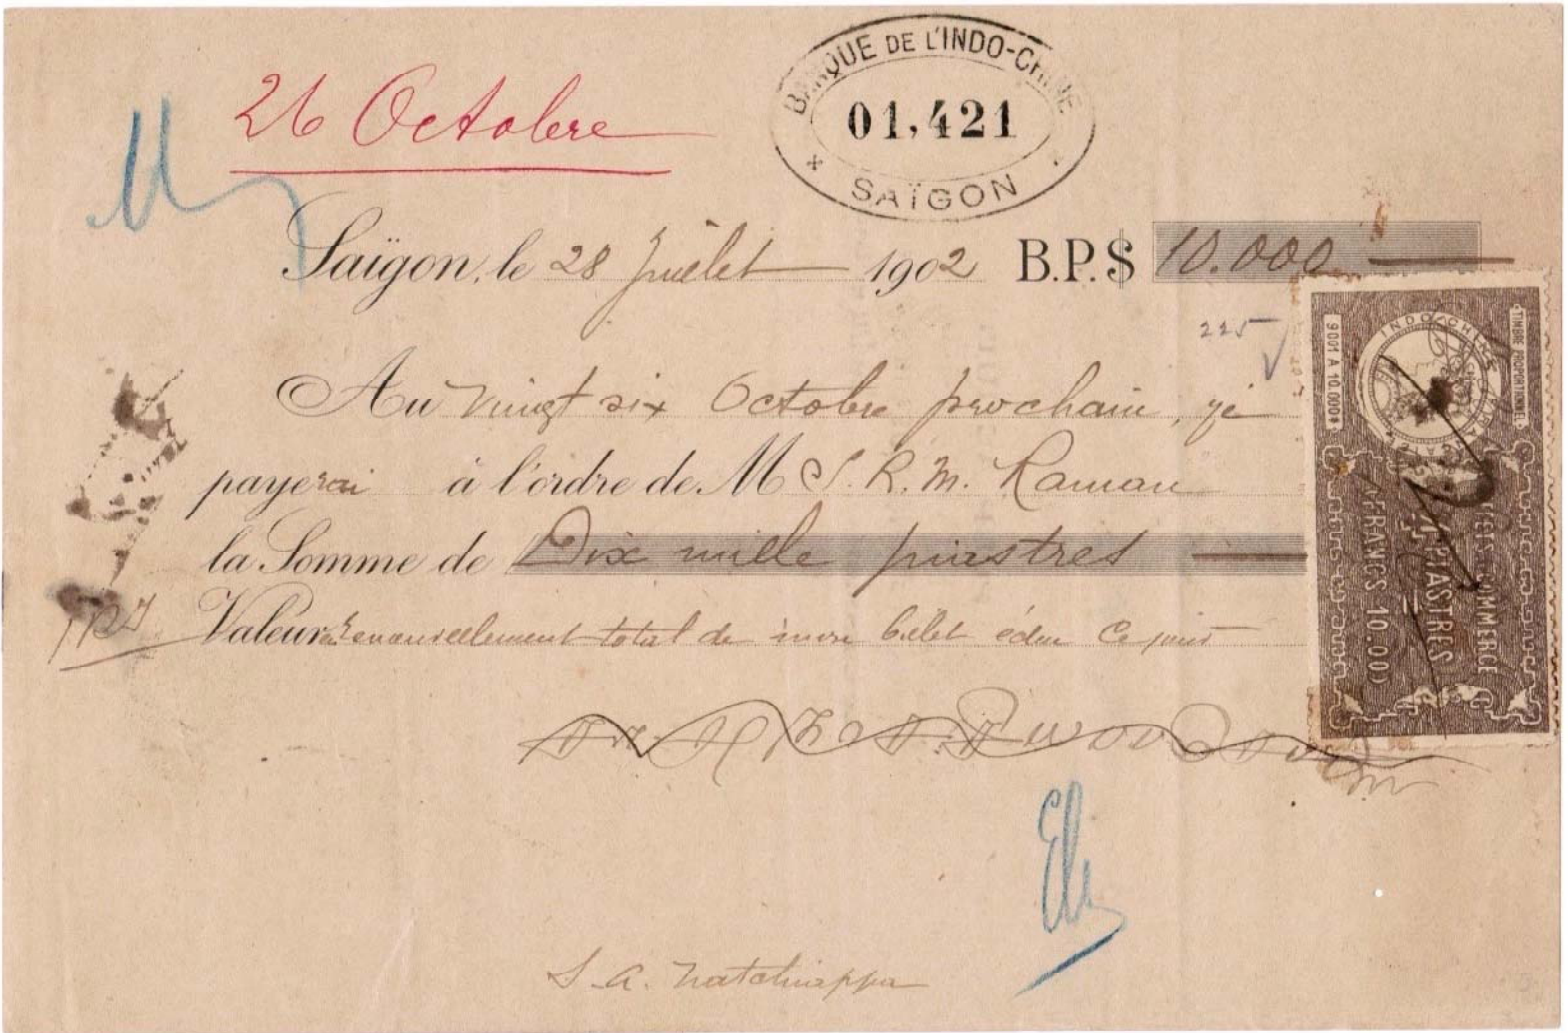 26 Octobre
BANQUE DE L'INDO-CHINE
01,421
SAÏGON
Saïgon, le 28 Juillet 1902 B.P.$ 10.000
225
Au vingt six Octobre prochain, je
payerai à l'ordre de M S. R. M. Raman
la Somme de Dix mille piastres
Valeur renouvellement total de mon billet échu ce jour
TIMBRE PROPORTIONNEL
INDO-CHINE
9001 A 10.000$
COMMERCE
PIASTRES
FRANCS 10.000
S. A. Natchiappa